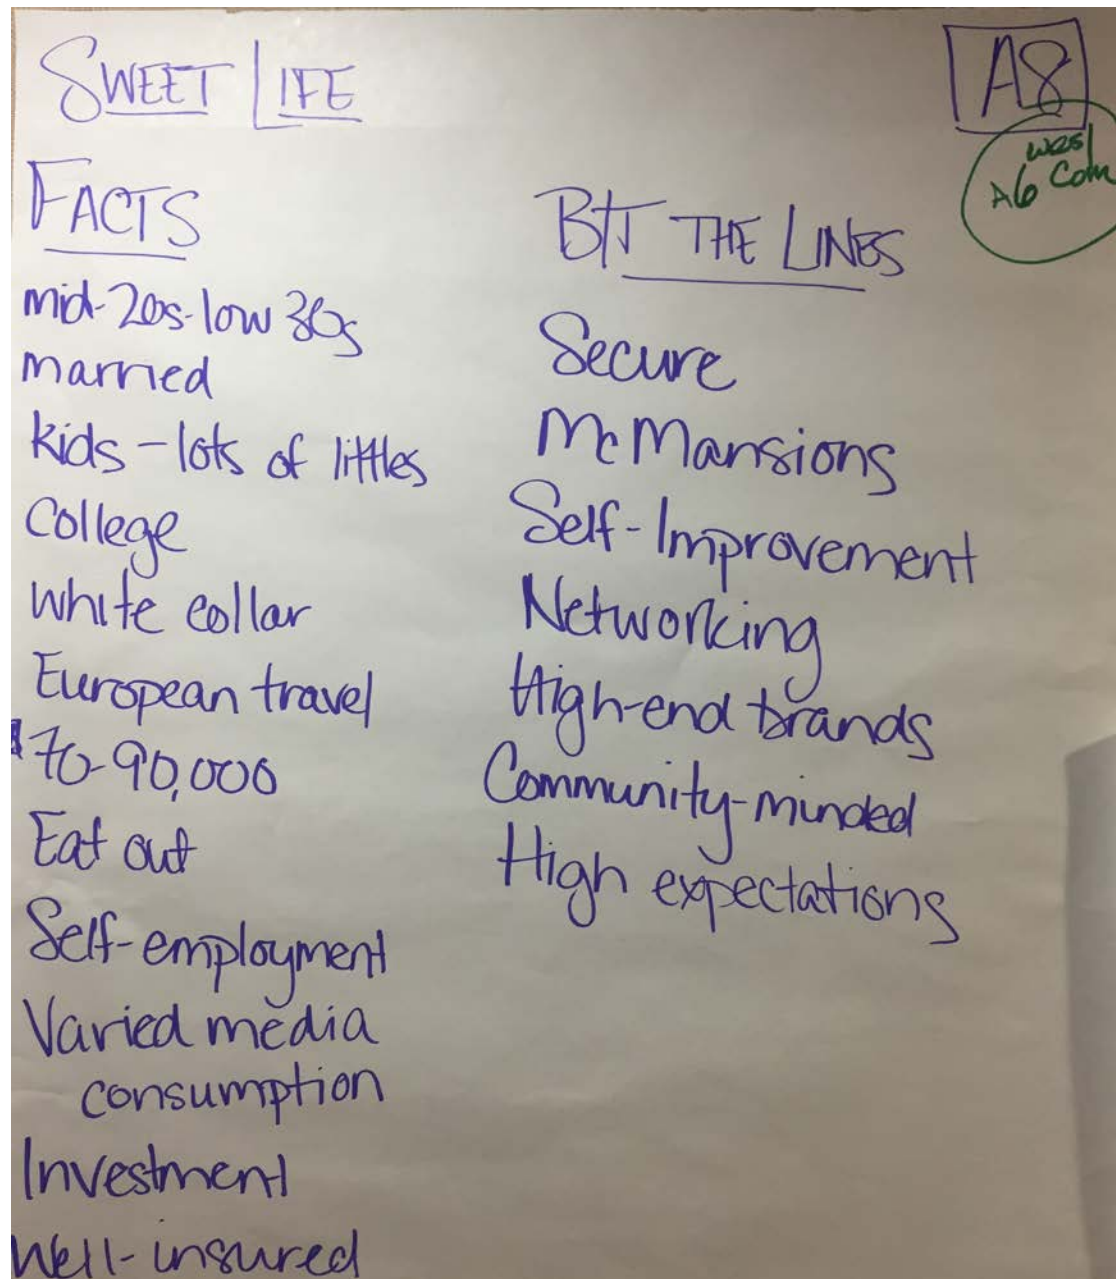 SWEET LIFE
A8
wes
A6 Com
FACTS
mid-20s-low 30s
married
kids - lots of littles
College
white collar
European travel
$70-90,000
Eat out
Self-employment
Varied media
consumption
Investment
Well-insured
BTJ THE LINES
Secure
McMansions
Self-Improvement
Networking
High-end brands
Community-minded
High expectations